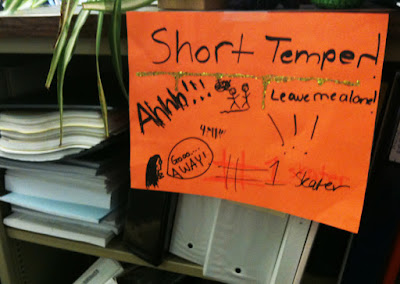 Short Temper!
Ahhh!!!
Leave me alone!
!!!
Gooo....
AWAY!
#1 skater